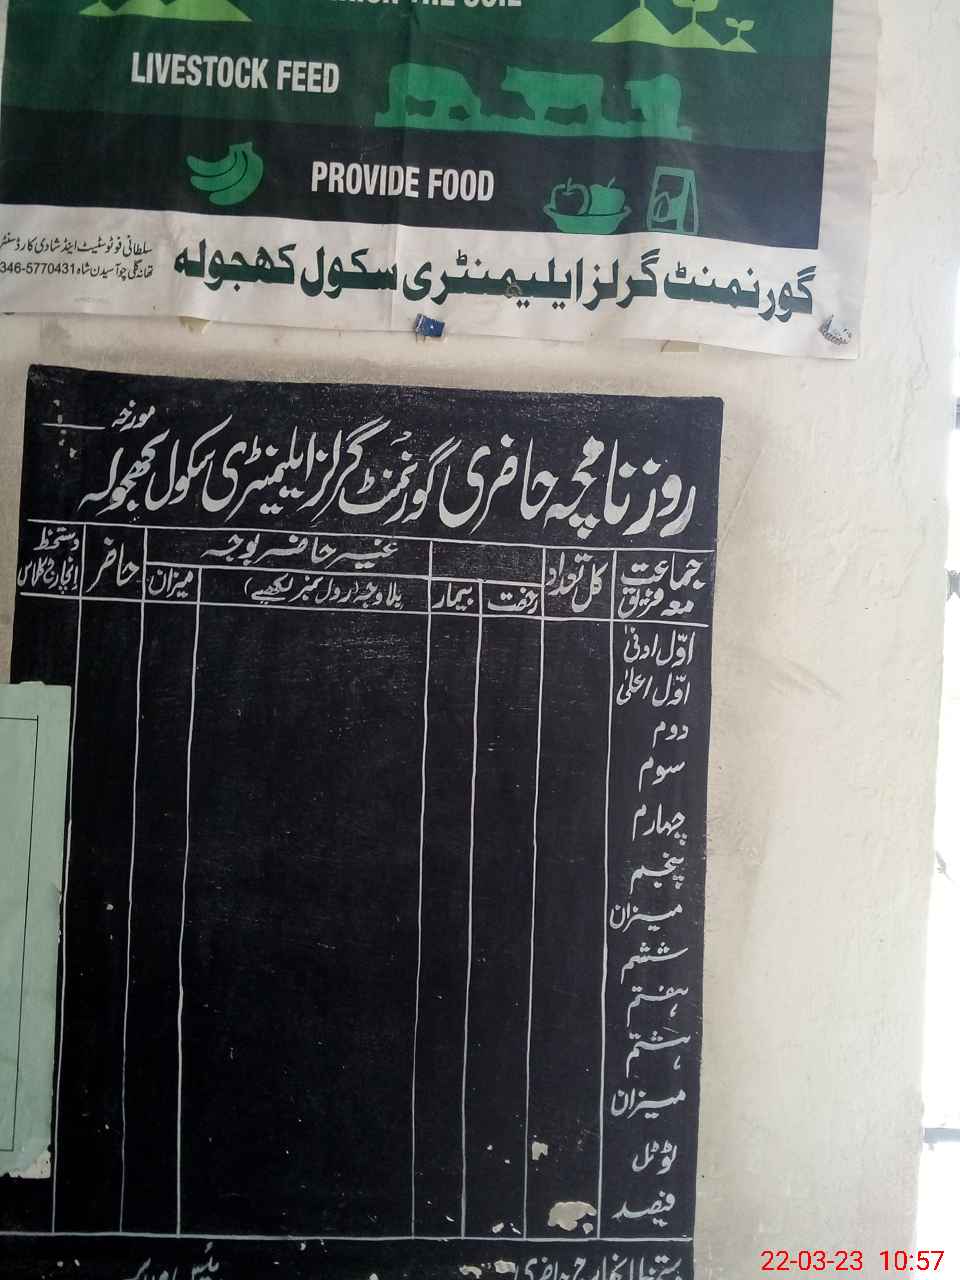 THE SOIL
LIVESTOCK FEED
PROVIDE FOOD
سلطانی فوٹوسٹیٹ اینڈ شادی کارڈ سنٹر
تھانہ گلی چوآسیدن شاہ 346-5770431
گورنمنٹ گرلز ایلیمنٹری سکول کھجولہ
مورخہ
روزنامچہ حاضری گورنمنٹ گرلز ایلیمنٹری سکول کھجولہ
جماعت معہ فریق کل تعداد غیر حاضر بوجہ حاضر دستخط انچارج کلاس
رخصت بیمار بلاوجہ (رول نمبر لکھیے) میزان
اوّل ادنیٰ
اوّل اعلیٰ
دوم
سوم
چہارم
پنجم
میزان
ششم
ہفتم
ہشتم
میزان
ٹوٹل
فیصد
دستخط انچارج حاضری
22-03-23 10:57